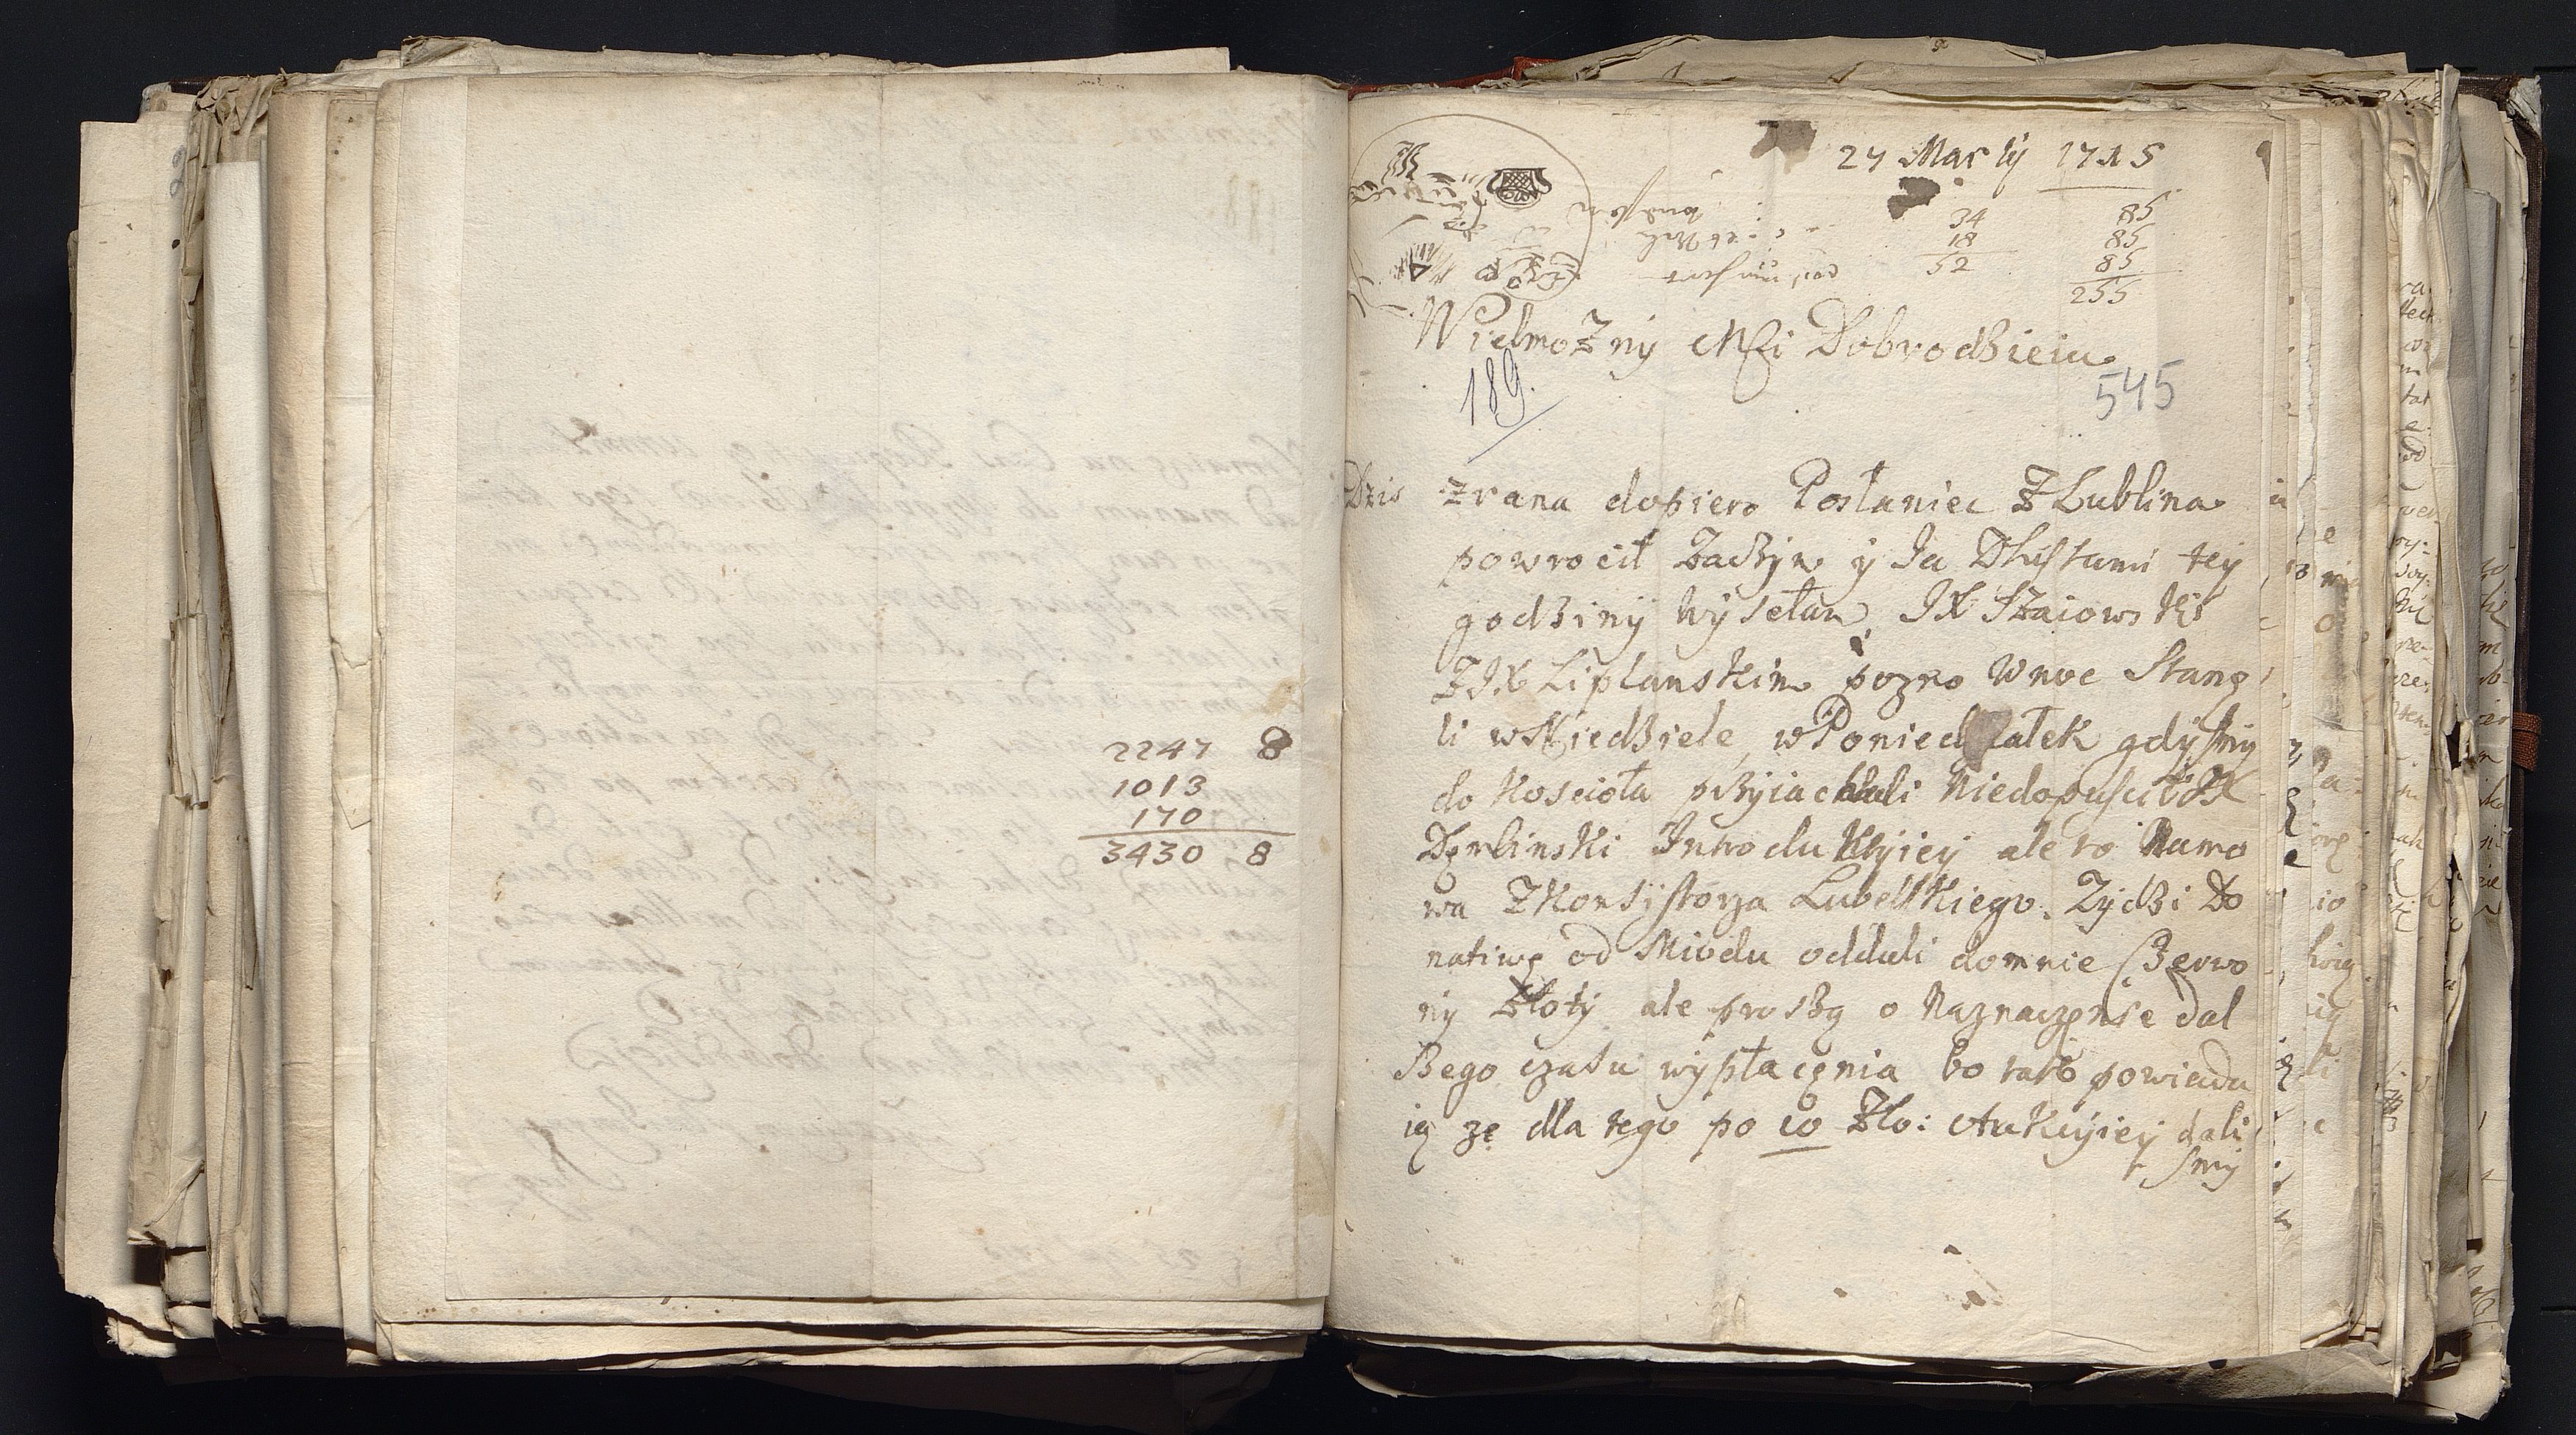 2247 8
1013
170
3430 8
27 Martij 1715
34 85
18 85
52 85
255
Wielmozny Mci Dobrodzieiu
189.
545
Dzis zrana dopiero Poslaniec z Lublina
powrocił zaczym y Ja Zlistami tey
godziny wysełam, JX Szaiowski
z JX Liplanskim pozno w noc Stanę
li w Niedziele, w Poniedziałek gdysmy
do Koscioła przyiachali Niedopuscił JX
Dęmbinski Introdukcyiey ale to Namo
wa z Konsystorza Lubelskiego. Zydzi Do
natiwę od Miodu oddali domnie Czerwo
ny złoty ale proszą o Naznaczenie dal
szego czasu wypłacenia bo tak powiada
ią ze dla tego po 10 zło: Aukcyiey dali
smy